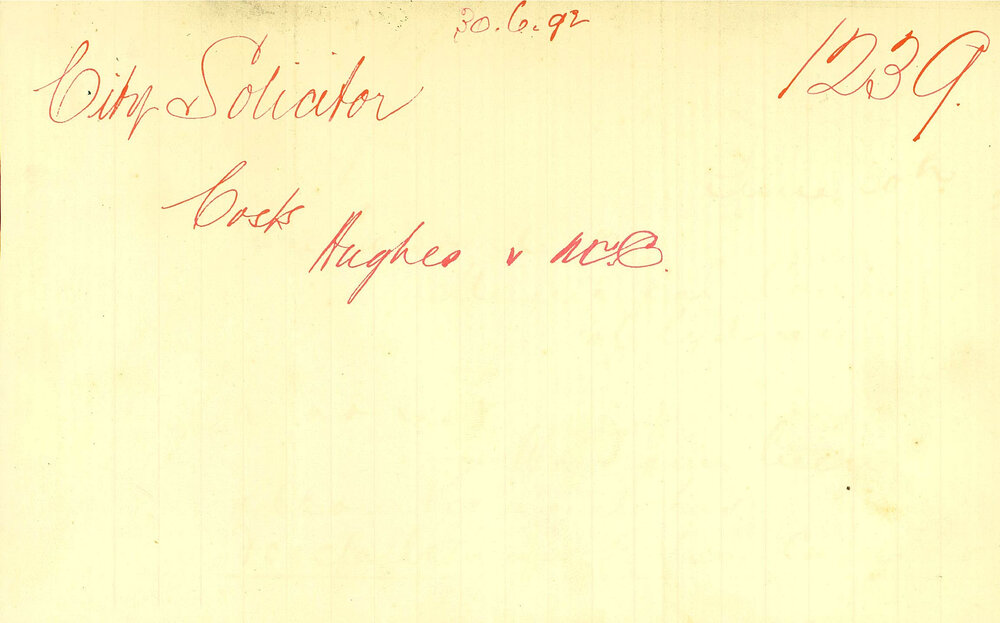 30.6.92
City Solicitor
1239.
Costs
Hughes v